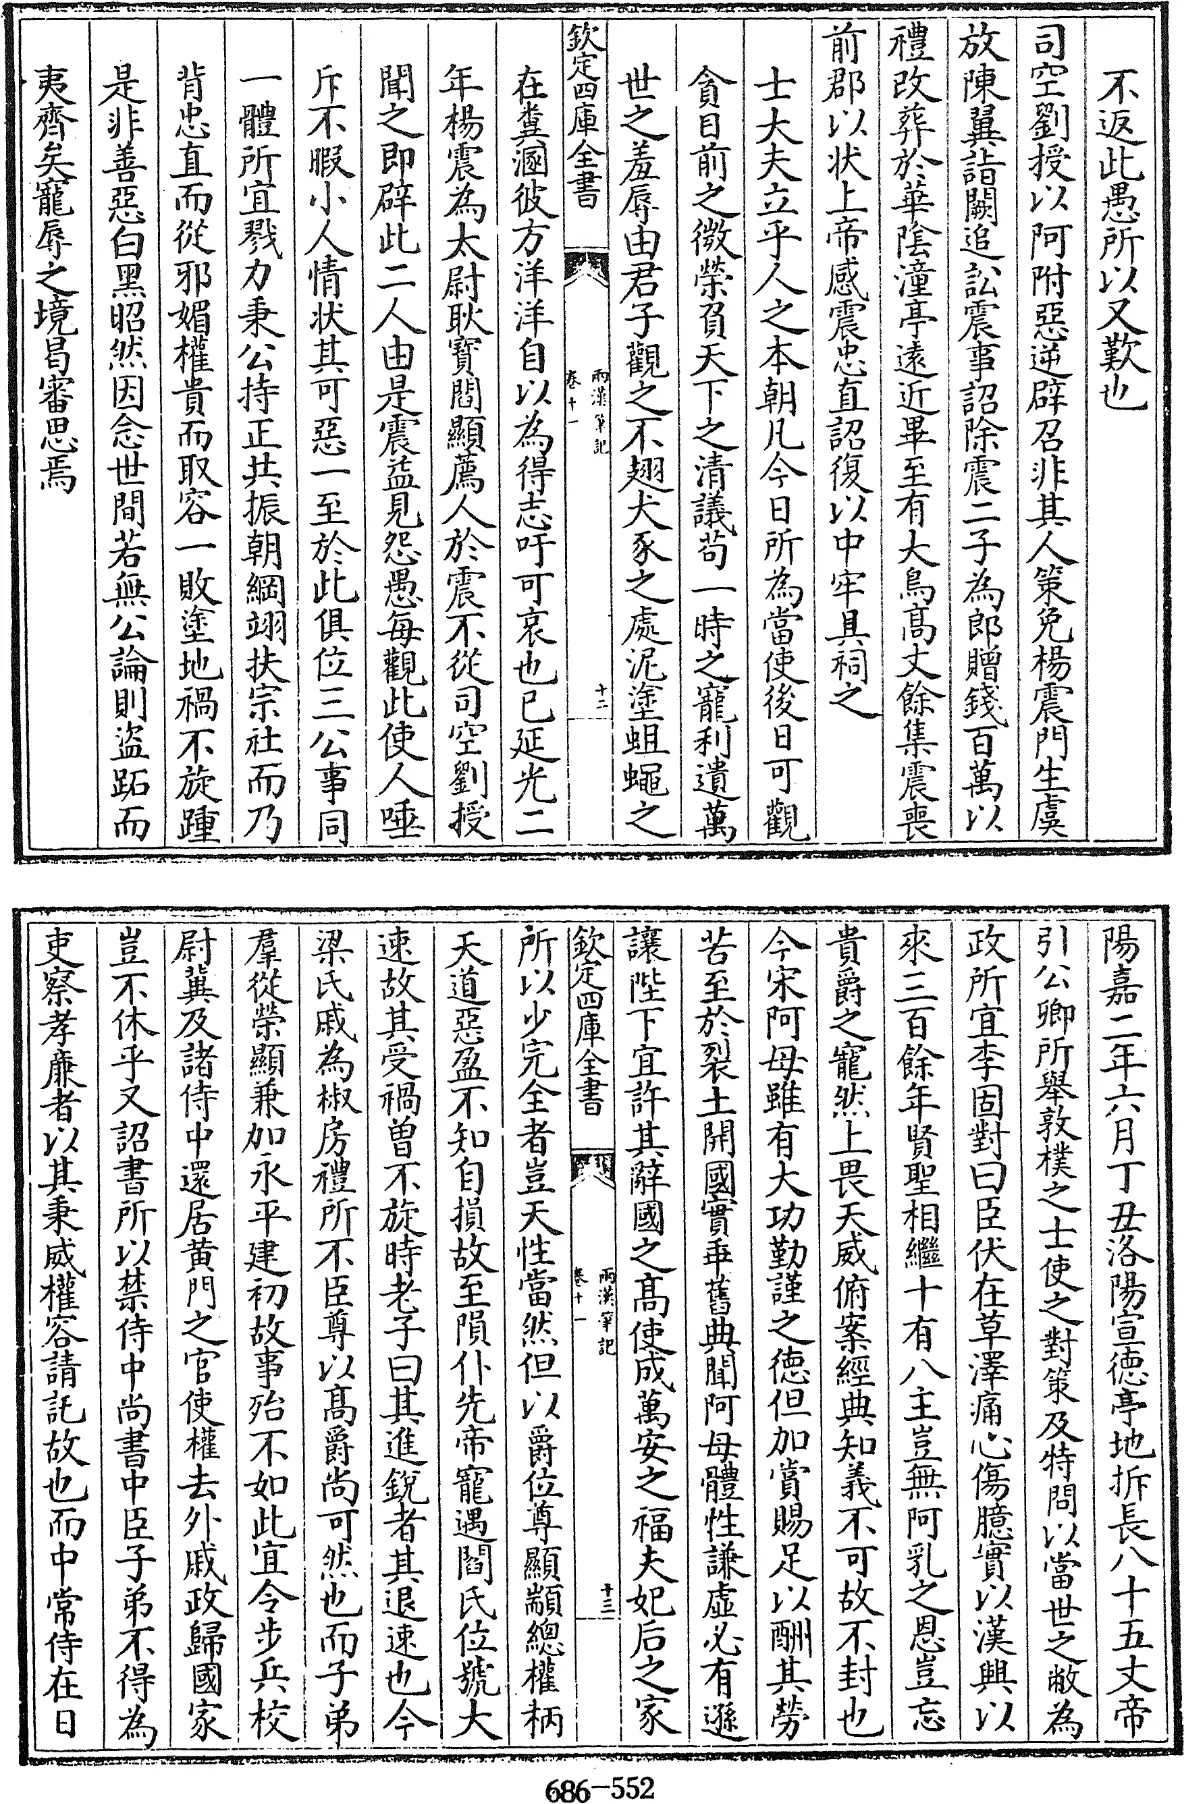 不返此愚所以又歎也
司空劉授以阿附惡逆辟召非其人策免楊震門生虞
放陳翼詣闕追訟震事詔除震二子為郎贈錢百萬以
禮改葬於華陰潼亭遠近畢至有大鳥髙丈餘集震喪
前郡以状上帝感震忠直詔復以中牢具祠之
士大夫立乎人之本朝凡今日所為當使後日可觀
貪目前之微榮負天下之清議茍一時之寵利遺萬
世之羞辱由君子觀之不翅犬豕之處泥塗蛆蠅之
欽定四庫全書
兩漢筆記
卷十一
十二
在糞溷彼方洋洋自以為得志吁可哀也已延光二
年楊震為太尉耿寶閻顯薦人於震不從司空劉授
聞之即辟此二人由是震益見怨愚毎觀此使人唾
斥不暇小人情状其可惡一至於此俱位三公事同
一體所宜戮力秉公持正共振朝綱翊扶宗社而乃
背忠直而從邪媚權貴而取容一敗塗地禍不旋踵
是非善惡白黑昭然因念世間若無公論則盜跖而
夷齊矣寵辱之境曷審思焉
陽嘉二年六月丁丑洛陽宣徳亭地拆長八十五丈帝
引公卿所舉敦樸之士使之對策及特問以當世之敝為
政所宜李固對曰臣伏在草澤痛心傷臆實以漢興以
來三百餘年賢聖相繼十有八主豈無阿乳之恩豈忘
貴爵之寵然上畏天威俯案經典知義不可故不封也
今宋阿母雖有大功勤謹之徳但加賞賜足以酬其勞
苦至於裂土開國實乖舊典聞阿母體性謙虛必有遜
讓陛下宜許其辭國之髙使成萬安之福夫妃后之家
欽定四庫全書
兩漢筆記
卷十一
十三
所以少完全者豈天性當然但以爵位尊顯顓總權柄
天道惡盈不知自損故至隕仆先帝寵遇閻氏位號太
速故其受禍曾不旋時老子曰其進銳者其退速也今
梁氏戚為椒房禮所不臣尊以髙爵尚可然也而子弟
羣從榮顯兼加永平建初故事殆不如此宜令步兵校
尉冀及諸侍中還居黄門之官使權去外戚政歸國家
豈不休乎又詔書所以禁侍中尚書中臣子弟不得為
吏察孝廉者以其秉威權容請託故也而中常侍在日
686-552